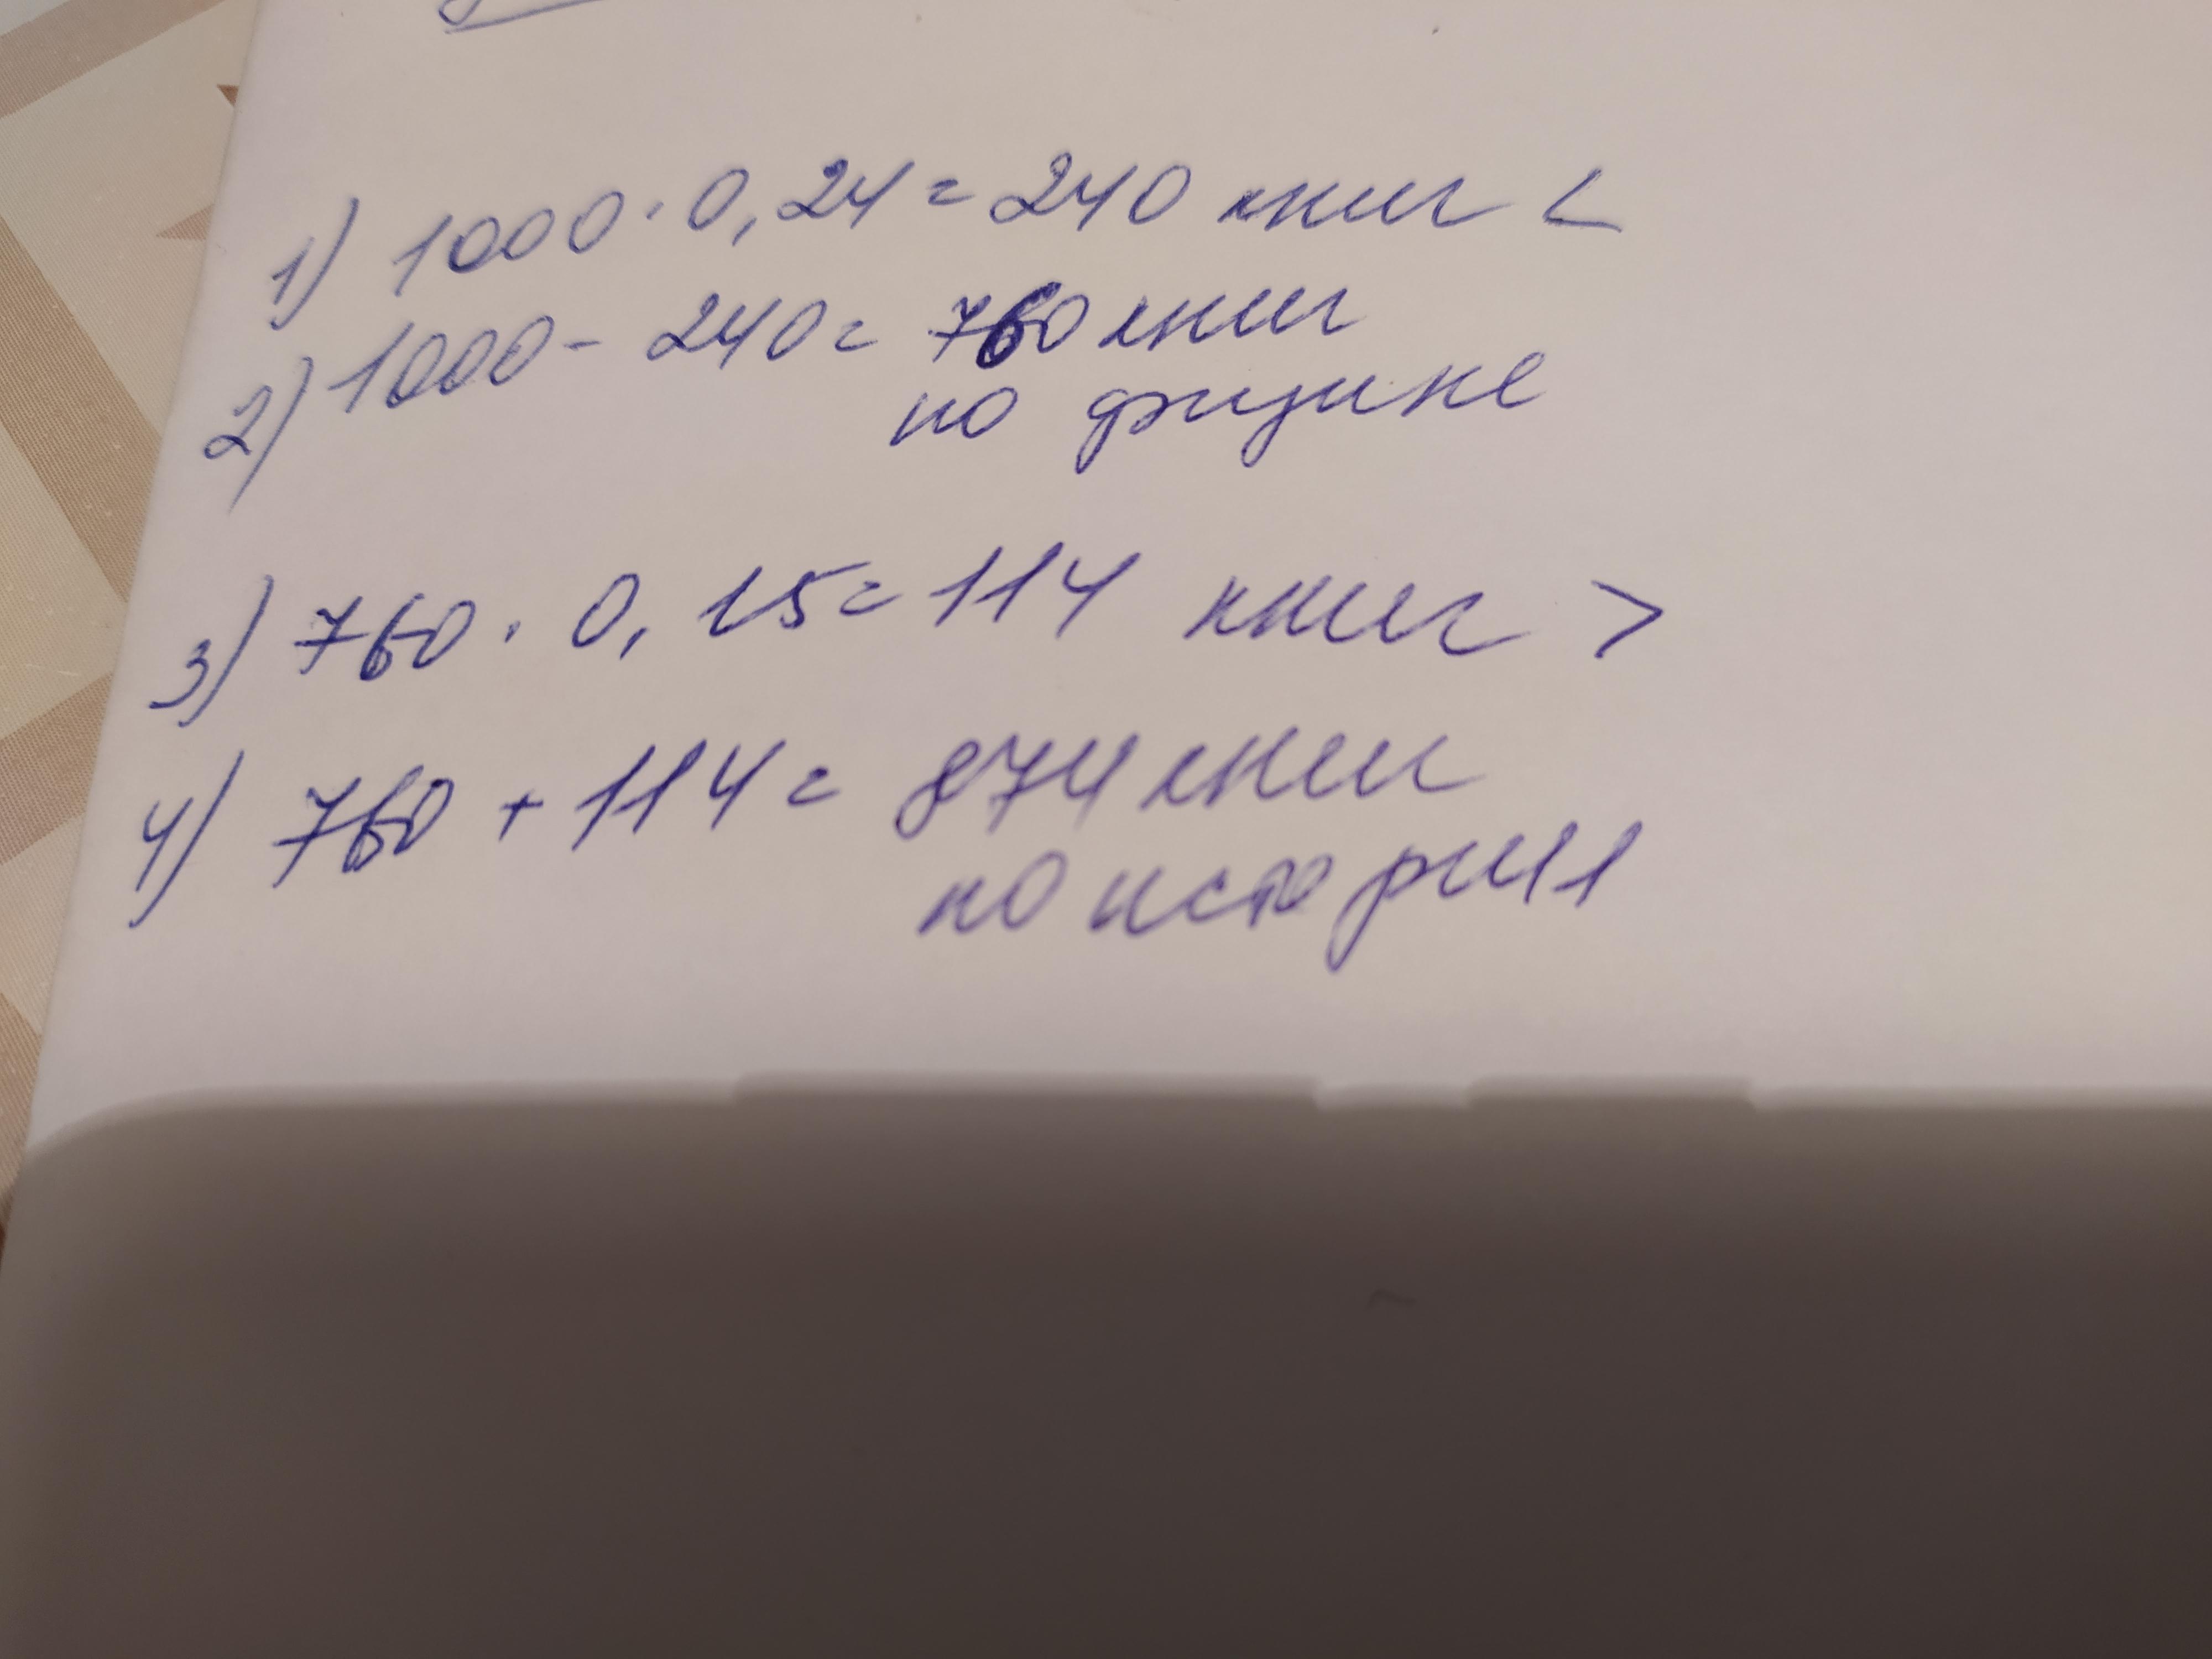 1) 1000 · 0,24 = 240 книг <
2) 1000 - 240 = 760 книг
по физике
3) 760 · 0,15 = 114 книг >
4) 760 + 114 = 874 книг
по истории